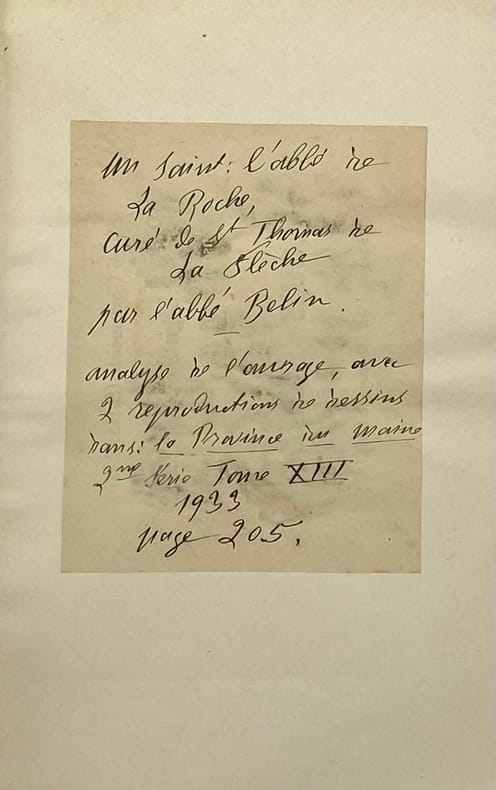 Un saint: l'abbé de
La Roche,
curé de St Thomas de
La Flèche
par l'abbé Belin.
analyse de l'ouvrage, avec
2 reproductions de dessins
dans: la Province du Maine
2me Serie Tome XIII
1933
page 205.